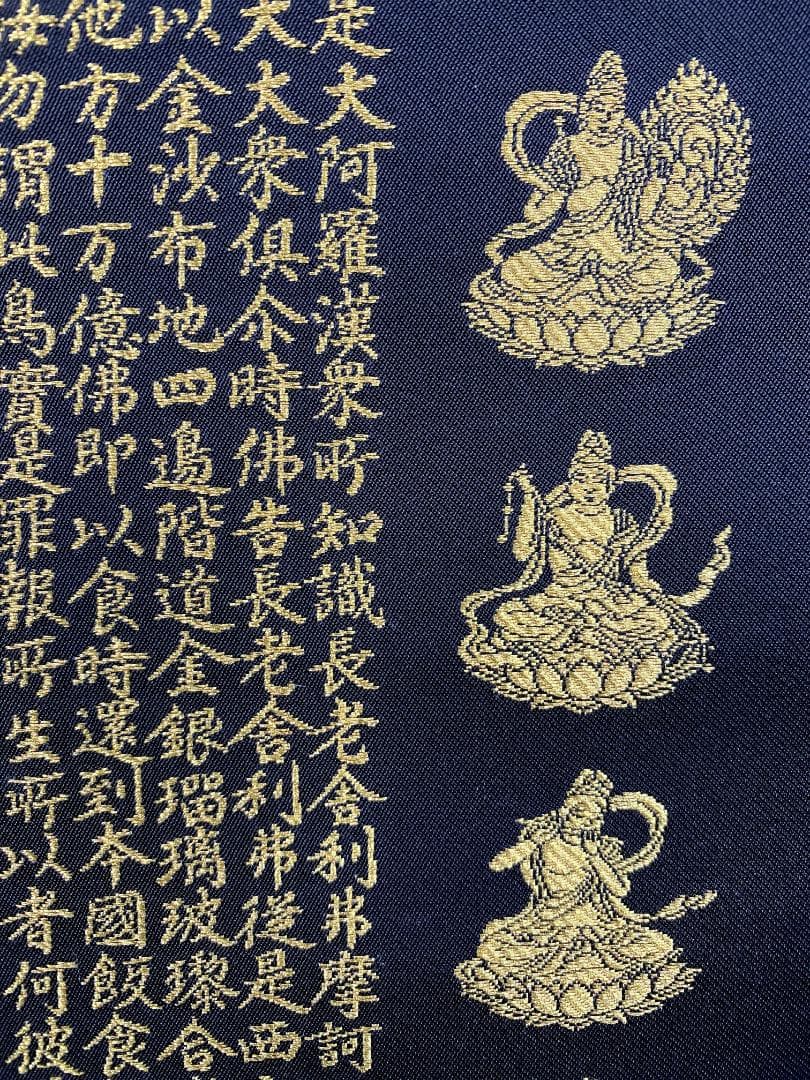 是大阿羅漢衆所知識長老舎利弗摩訶
大大衆俱尒時佛告長老舎利弗從是西
以金沙布地四邊階道金銀瑠璃玻瓈合
他方十万億佛即以食時還到本國飯食
汝勿謂此鳥實是罪報所生所以者何彼